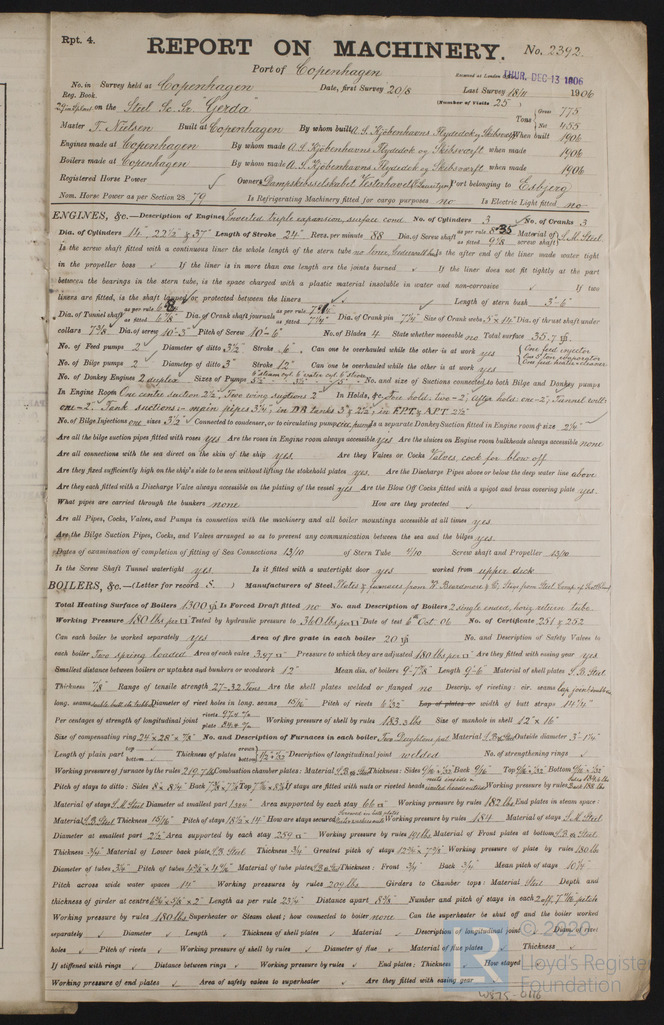 Rpt. 4.
REPORT ON MACHINERY. No. 2392
Port of Copenhagen
Received at London THUR. DEC. 13 1906
No. in Survey held at Copenhagen Date, first Survey 20/8 Last Survey 18/11 1906
Reg. Book.
on the Steel Sc. Sr. "Gerda" (Number of Visits 25)
Tons Gross 775
Net 455
Master T. Nielsen Built at Copenhagen By whom built A.S. Kjöbenhavns Flydedok og Skibsværft When built 1906
Engines made at Copenhagen By whom made A.S. Kjöbenhavns Flydedok og Skibsværft when made 1906
Boilers made at Copenhagen By whom made A.S. Kjöbenhavns Flydedok og Skibsværft when made 1906
Registered Horse Power Owners Dampskibsselskabet Vesterhavet Port belonging to Esbjerg
Nom. Horse Power as per Section 28 79 Is Refrigerating Machinery fitted for cargo purposes no Is Electric Light fitted no
ENGINES, &c.—Description of Engines Inverted triple expansion, surface cond. No. of Cylinders 3 No. of Cranks 3
Dia. of Cylinders 14" 22½" & 37" Length of Stroke 24" Revs. per minute 88 Dia. of Screw shaft as per rule 8.35 as fitted 9⅛ Material of screw shaft S.M. Steel
Is the screw shaft fitted with a continuous liner the whole length of the stern tube no liner Is the after end of the liner made water tight
in the propeller boss If the liner is in more than one length are the joints burned If the liner does not fit tightly at the part
between the bearings in the stern tube, is the space charged with a plastic material insoluble in water and non-corrosive If two
liners are fitted, is the shaft lapped or protected between the liners Length of stern bush 3'-6"
Dia. of Tunnel shaft as per rule as fitted Dia. of Crank shaft journals as per rule as fitted 7¼" Dia. of Crank pin 7¼" Size of Crank webs 5 x 14" Dia. of thrust shaft under
collars 7⅜" Dia. of screw 10'-3" Pitch of Screw 10'-6" No. of Blades 4 State whether moveable no Total surface 35.7 sq.
No. of Feed pumps 2 Diameter of ditto 3½" Stroke 6" Can one be overhauled while the other is at work yes
No. of Bilge pumps 2 Diameter of ditto 3" Stroke 12" Can one be overhauled while the other is at work yes
No. of Donkey Engines 2 duplex Sizes of Pumps No. and size of Suctions connected to both Bilge and Donkey pumps
In Engine Room One centre suction 2½", Two wing suctions 2" In Holds, &c. Fore hold: two - 2", After hold: one - 2", Tunnel well:
one - 2". Tank suctions:- main pipes 3¼", in DB tanks 3" & 2½", in F.P.T & A.P.T. 2½"
No. of Bilge Injections one sizes 3½" Connected to condenser, or to circulating pump circ. pump Is a separate Donkey Suction fitted in Engine room & size 2½"
Are all the bilge suction pipes fitted with roses yes Are the roses in Engine room always accessible yes Are the sluices on Engine room bulkheads always accessible none
Are all connections with the sea direct on the skin of the ship yes. Are they Valves or Cocks Valves, cock for blow off
Are they fixed sufficiently high on the ship's side to be seen without lifting the stokehold plates yes. Are the Discharge Pipes above or below the deep water line above
Are they each fitted with a Discharge Valve always accessible on the plating of the vessel yes Are the Blow Off Cocks fitted with a spigot and brass covering plate yes.
What pipes are carried through the bunkers none How are they protected
Are all Pipes, Cocks, Valves, and Pumps in connection with the machinery and all boiler mountings accessible at all times yes
Are the Bilge Suction Pipes, Cocks, and Valves arranged so as to prevent any communication between the sea and the bilges yes.
Dates of examination of completion of fitting of Sea Connections 13/10 of Stern Tube 9/10 Screw shaft and Propeller 13/10
Is the Screw Shaft Tunnel watertight yes Is it fitted with a watertight door yes worked from upper deck
BOILERS, &c.—(Letter for record S.) Manufacturers of Steel Plates & furnaces from W. Beardmore & Co; Stays from Steel Comp. of Scotland
Total Heating Surface of Boilers 1300 Is Forced Draft fitted no No. and Description of Boilers 2 single ended, horiz. return tube
Working Pressure 180 lbs per □" Tested by hydraulic pressure to 360 lbs per □" Date of test 6th Oct. 06 No. of Certificate 251 & 252
Can each boiler be worked separately yes Area of fire grate in each boiler 20 No. and Description of Safety Valves to
each boiler Two spring loaded Area of each valve 3.97 Pressure to which they are adjusted 180 lbs per □" Are they fitted with easing gear yes
Smallest distance between boilers or uptakes and bunkers or woodwork 12" Mean dia. of boilers 9'-7⅞" Length 9'-6 Material of shell plates S.B. Steel
Thickness ⅞ Range of tensile strength 27-32 Tons Are the shell plates welded or flanged no Descrip. of riveting: cir. seams
long. seams Diameter of rivet holes in long. seams 15/16" Pitch of rivets Lap of plates or width of butt straps 14¾"
Per centages of strength of longitudinal joint rivets plate Working pressure of shell by rules 183.3 lbs Size of manhole in shell 12" x 16"
Size of compensating ring 24 x 28" x ⅞" No. and Description of Furnaces in each boiler Two Deightons pat. Material S.B. Steel Outside diameter 3'-1⅛"
Length of plain part top bottom Thickness of plates crown bottom Description of longitudinal joint welded No. of strengthening rings
Working pressure of furnace by the rules 219.7 lbs Combustion chamber plates: Material S.B. Steel Thickness: Sides Back 9/16 Top Bottom
Pitch of stays to ditto: Sides 8 x 8¼" Back Top If stays are fitted with nuts or riveted heads Working pressure by rules
Material of stays S.M. Steel Diameter at smallest part Area supported by each stay 66 Working pressure by rules 182 lbs End plates in steam space:
Material S.B. Steel Thickness 15/16" Pitch of stays 18½" x 14" How are stays secured Working pressure by rules 184 Material of stays S.M. Steel
Diameter at smallest part 2½" Area supported by each stay 259 Working pressure by rules 191 lbs Material of Front plates at bottom S.B. Steel
Thickness ¾" Material of Lower back plate S.B. Steel Thickness ¾" Greatest pitch of stays Working pressure of plate by rules 180 lb
Diameter of tubes 3¼" Pitch of tubes Material of tube plates S.B. Steel Thickness: Front ¾" Back ¾" Mean pitch of stays
Pitch across wide water spaces 14" Working pressures by rules 209 lbs Girders to Chamber tops: Material Steel Depth and
thickness of girder at centre Length as per rule 23¼" Distance apart 8⅜" Number and pitch of stays in each
Working pressure by rules 180 lbs Superheater or Steam chest; how connected to boiler none Can the superheater be shut off and the boiler worked
separately Diameter Length Thickness of shell plates Material Description of longitudinal joint Diam. of rivet
holes Pitch of rivets Working pressure of shell by rules Diameter of flue Material of flue plates Thickness
If stiffened with rings Distance between rings Working pressure by rules End plates: Thickness How stayed
Working pressure of end plates Area of safety valves to superheater Are they fitted with easing gear
© 2020
LR
Lloyd's Register
Foundation